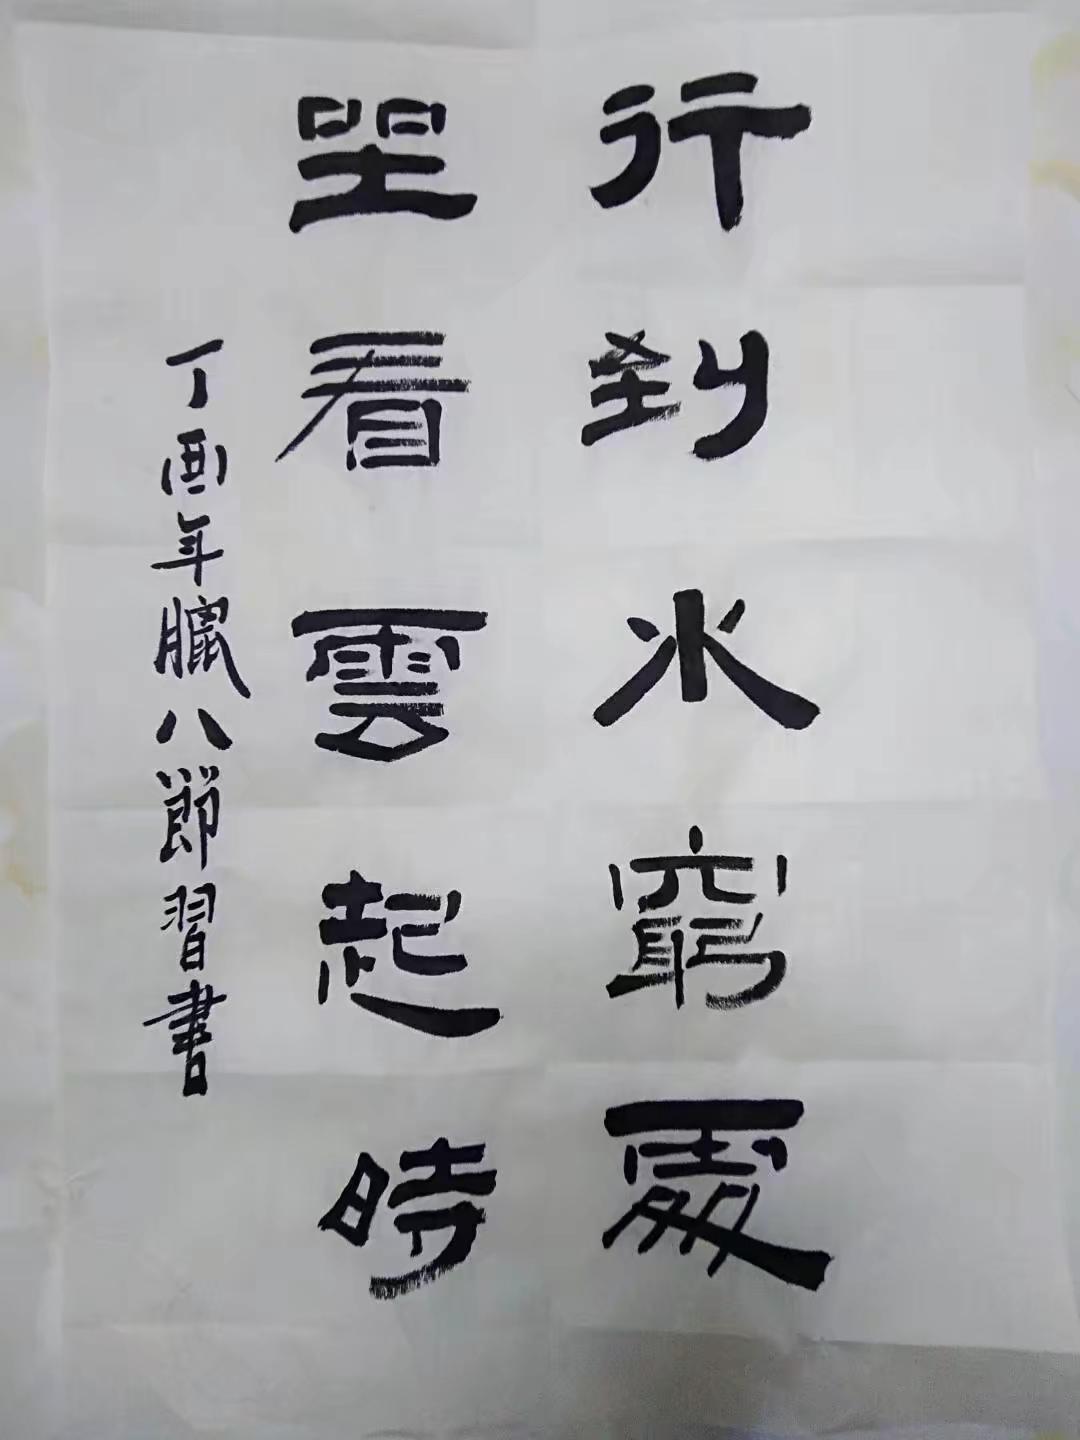 行到水窮處
坐看雲起時
丁酉年臘八節習書